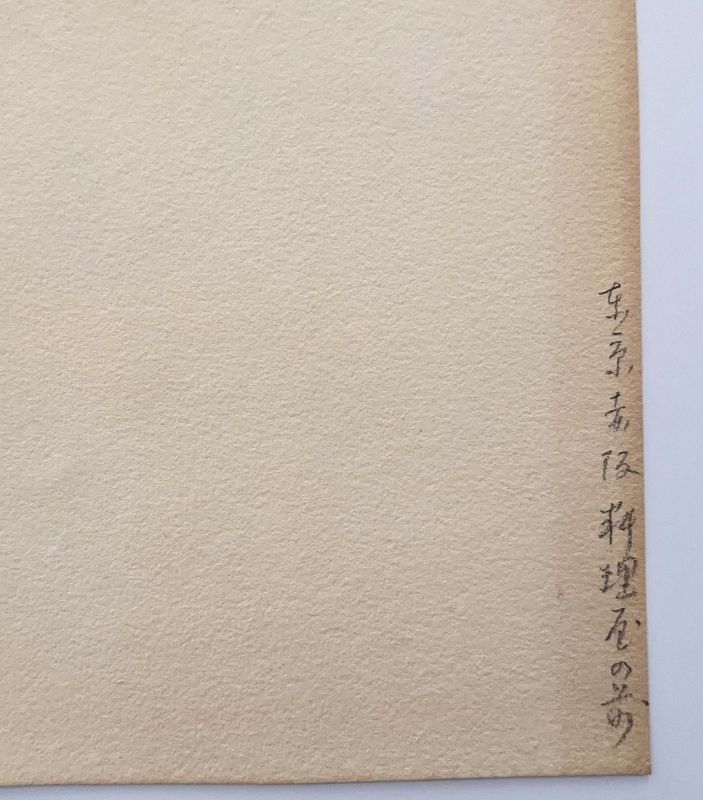 東京赤阪料理屋の前